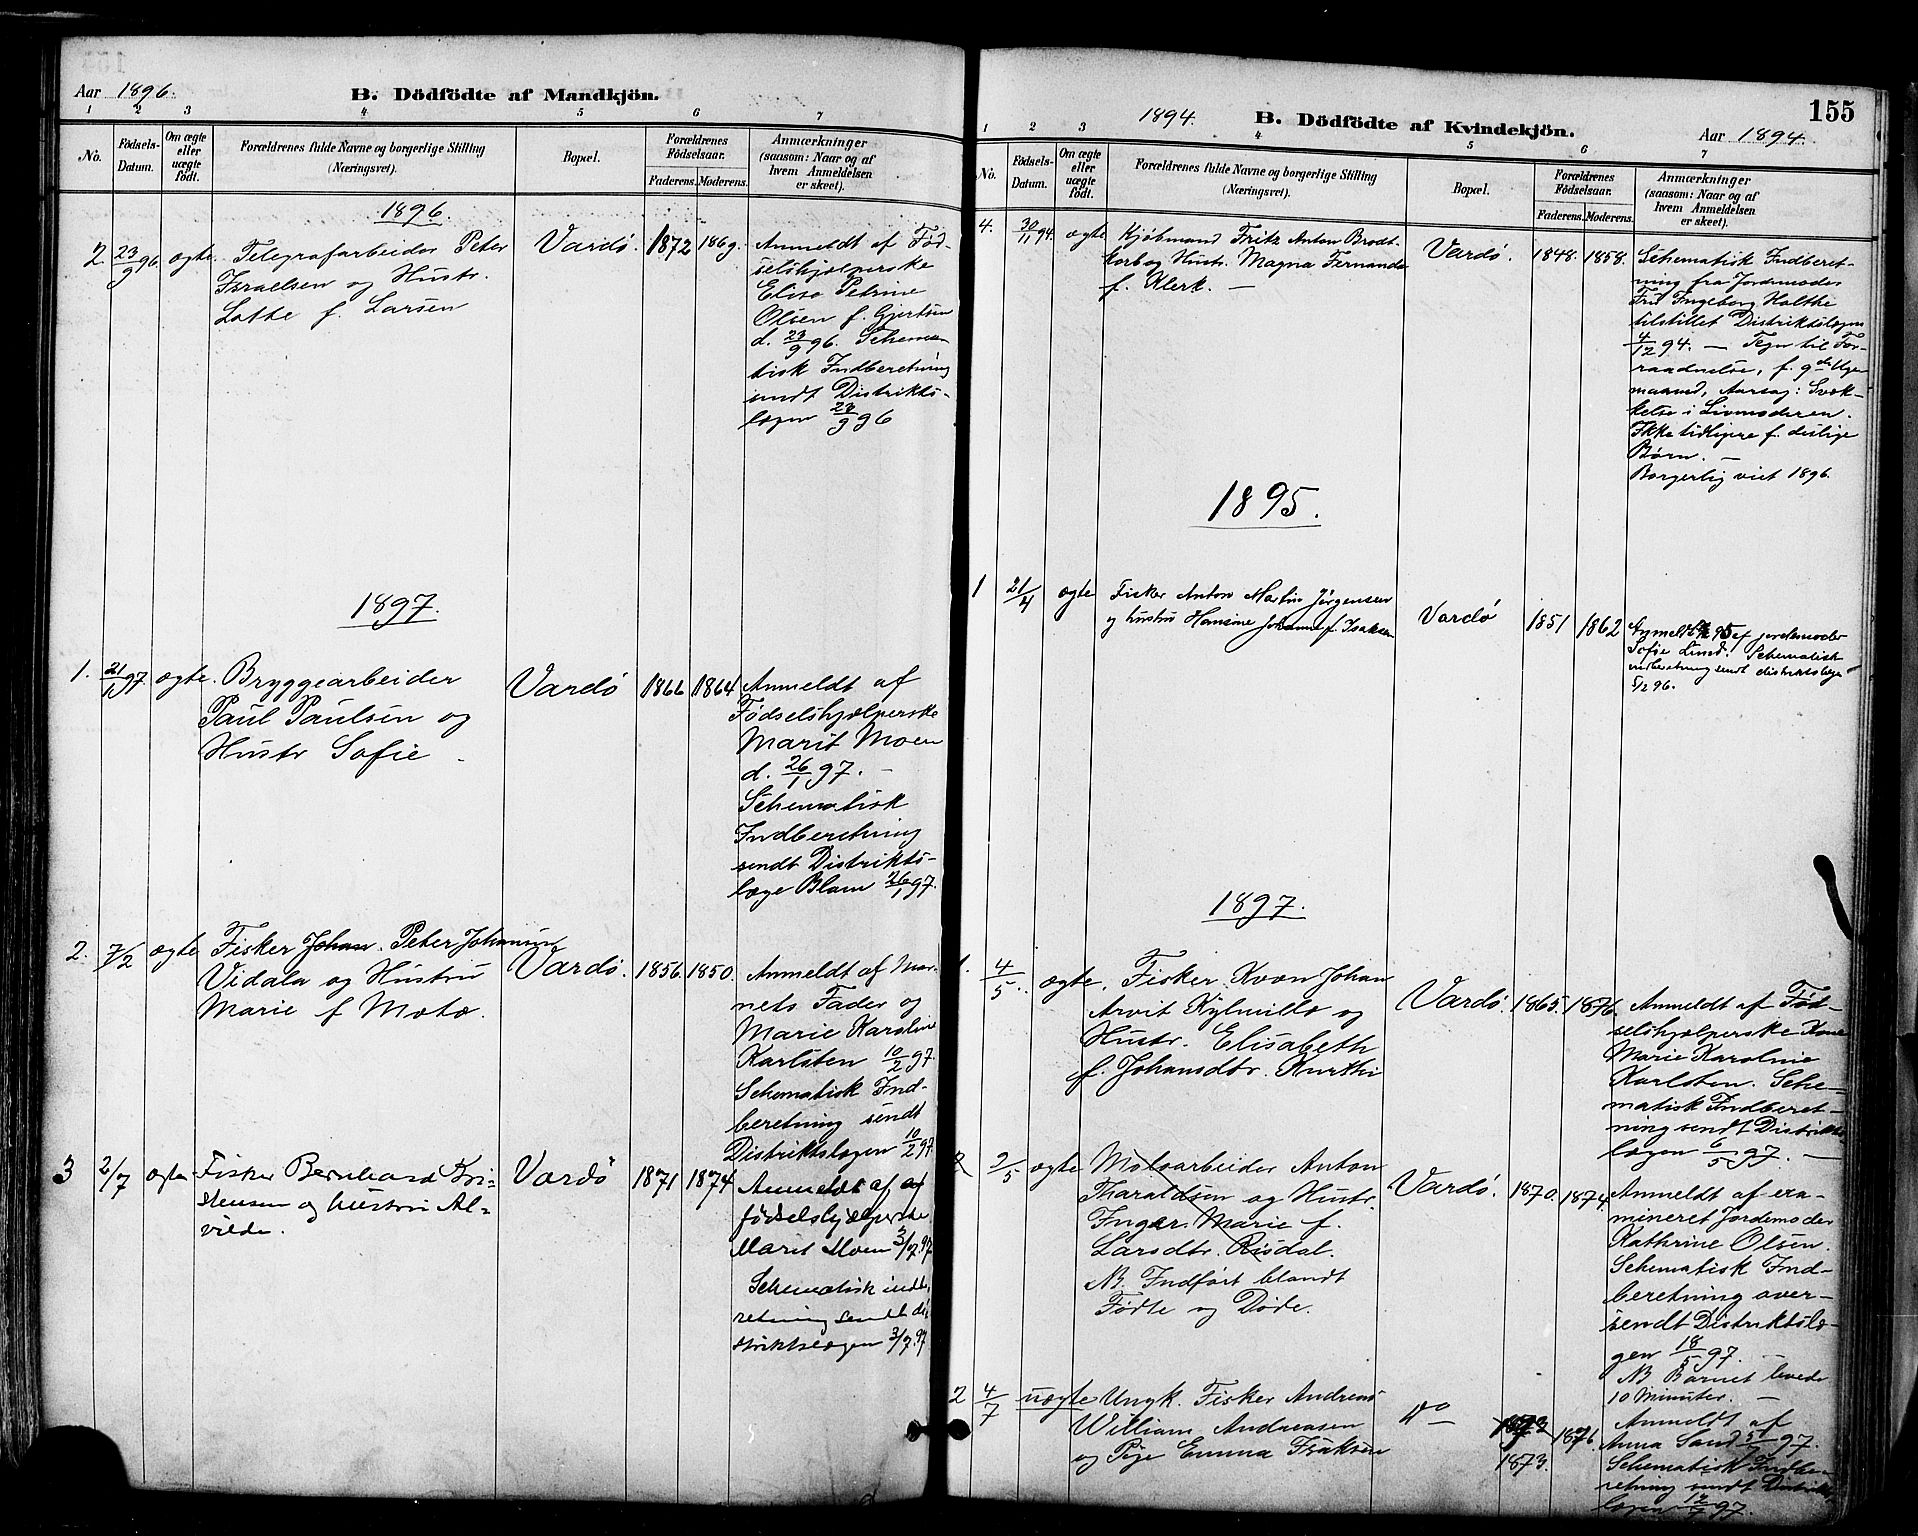 Aar 1896.
B. Dödfödte af Mandkjön.
1 2 3 4 5 6 7
No.
Födsels-Datum.
Om ægte eller uægte født.
Forældrenes fulde Navne og borgerlige Stilling (Næringsvei).
Bopæl.
Forældrenes Fødselsaar.
Faderens. Moderens.
Anmærkninger (saasom: Naar og af hvem Anmeldelsen er skeet).
1896.
2 23/9 96 ægte. Telegrafarbeider Peter
Israelsen og Hustr.
Lotte f. Larsen
Vardö. 1872 1869.
Anmeldt af Fød-
selshjælperske
Elise Petrine
Olsen f. Gjertsen
d. 23/9 96. Schema-
tisk Indberetning
sendt Distrikts-
lægen 23/9 96
1897.
1. 21/1 97 ægte. Bryggearbeider
Paul Paulsen og
Hustr Sofie
Vardö 1866 1864
Anmeldt af
Fødselshjælperske
Marit Moen
d. 26/1 97. —
Schematisk
Indberetning
sendt Distrikts-
læge Blam 26/1 97.
2. 7/2 ægte Fisker Johan. Peter Johansen
Vidala og Hustru
Marie f Mota.
Vardö. 1856. 1850.
Anmeldt af Bar-
nets Fader og
Marie Karoline
Karlsten 10/2 97.
Schematisk Ind-
beretning sendt
Distriktslægen 10/2 97
3 2/7 ægte Fisker Bernhard Kri-
stensen og hustru Al-
vilde.
Vardö 1871 1874
Anmeldt af
fødselshjælperske
Marit Moen 3/7.97
Schematisk indb.
retning sendt di-
striktslægen 3/7.97
155
1894.
B. Dödfödte af Kvindekjön.
Aar 1894.
1 2 3 4 5 6 7
No.
Födsels-Datum.
Om ægte eller uægte født.
Forældrenes fulde Navne og borgerlige Stilling (Næringsvei).
Bopæl.
Forældrenes Fødselsaar.
Faderens. Moderens.
Anmærkninger (saasom: Naar og af hvem Anmeldelsen er skeet).
4. 30/11 94. ægte Kjöbmand Fritz Anton Brodt-
korb og Hustr. Magna Fernanda
f. Klerk. —
Vardö. 1848. 1858.
Schematisk Indberet-
ning fra Jordemoder
Fru Ingeborg Holthe
tilstillet Distriktslægen
4/12 94. — Tegn til For-
raadnelse, f. 9de Uge
maaned, Aarsag: Svæk-
kelse i Livmoderen.
Ikke tidligere f. deslige
Børn. —
Borgerlig viet 1896.
1895.
1 21/4 ægte Fisker Anton Martin Jørgensen
og hustru Hansine Johanne f. Isaksen
Vardö 1851 1862
Anmeldt 95 af jordemoder
Sofie Lund. Schematisk
indberetning sendt distriktslæge
5/2 96.
1897.
1. 4/5. ægte. Fisker Kvæn Johan
Arvit Kylmillo og
Hustr. Elisabeth
f. Johansdtr. Kurthi
Vardö. 1865. 1876.
Anmeldt af Fød-
selshjælperske Kone
Marie Karoline
Karlsten. Sche-
matisk Indberet-
ning sendt Distrikts
lægen 6/5 97. —
2 2/5 ægte Moloarbeider Anton
Tharaldsen og Hustr.
Inger Marie f.
Larsdtr. Risdal.
NB. Indført blandt
Fødte og Døde.
Vardö. 1870. 1874.
Anmeldt af exa-
mineret Jordemoder
Kathrine Olsen.
Schematisk Ind-
beretning over-
sendt Distriktslæ-
gen 18/5 97. —
NB Barnet levede
10 Minuter. —
2 4/7 uægte Ungk. Fisker Andreas
William Andreasen
og Pige Emma Isaksen
do 1873 1876.
1873.
Anmeldt af
Anna Sand 5/7 97.
Schematisk Indbe-
retning sendt Distrikts
lægen 12/7 97.